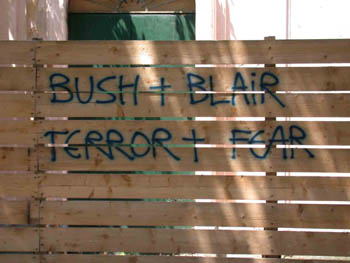 BUSH + BLAIR
TERROR + FEAR